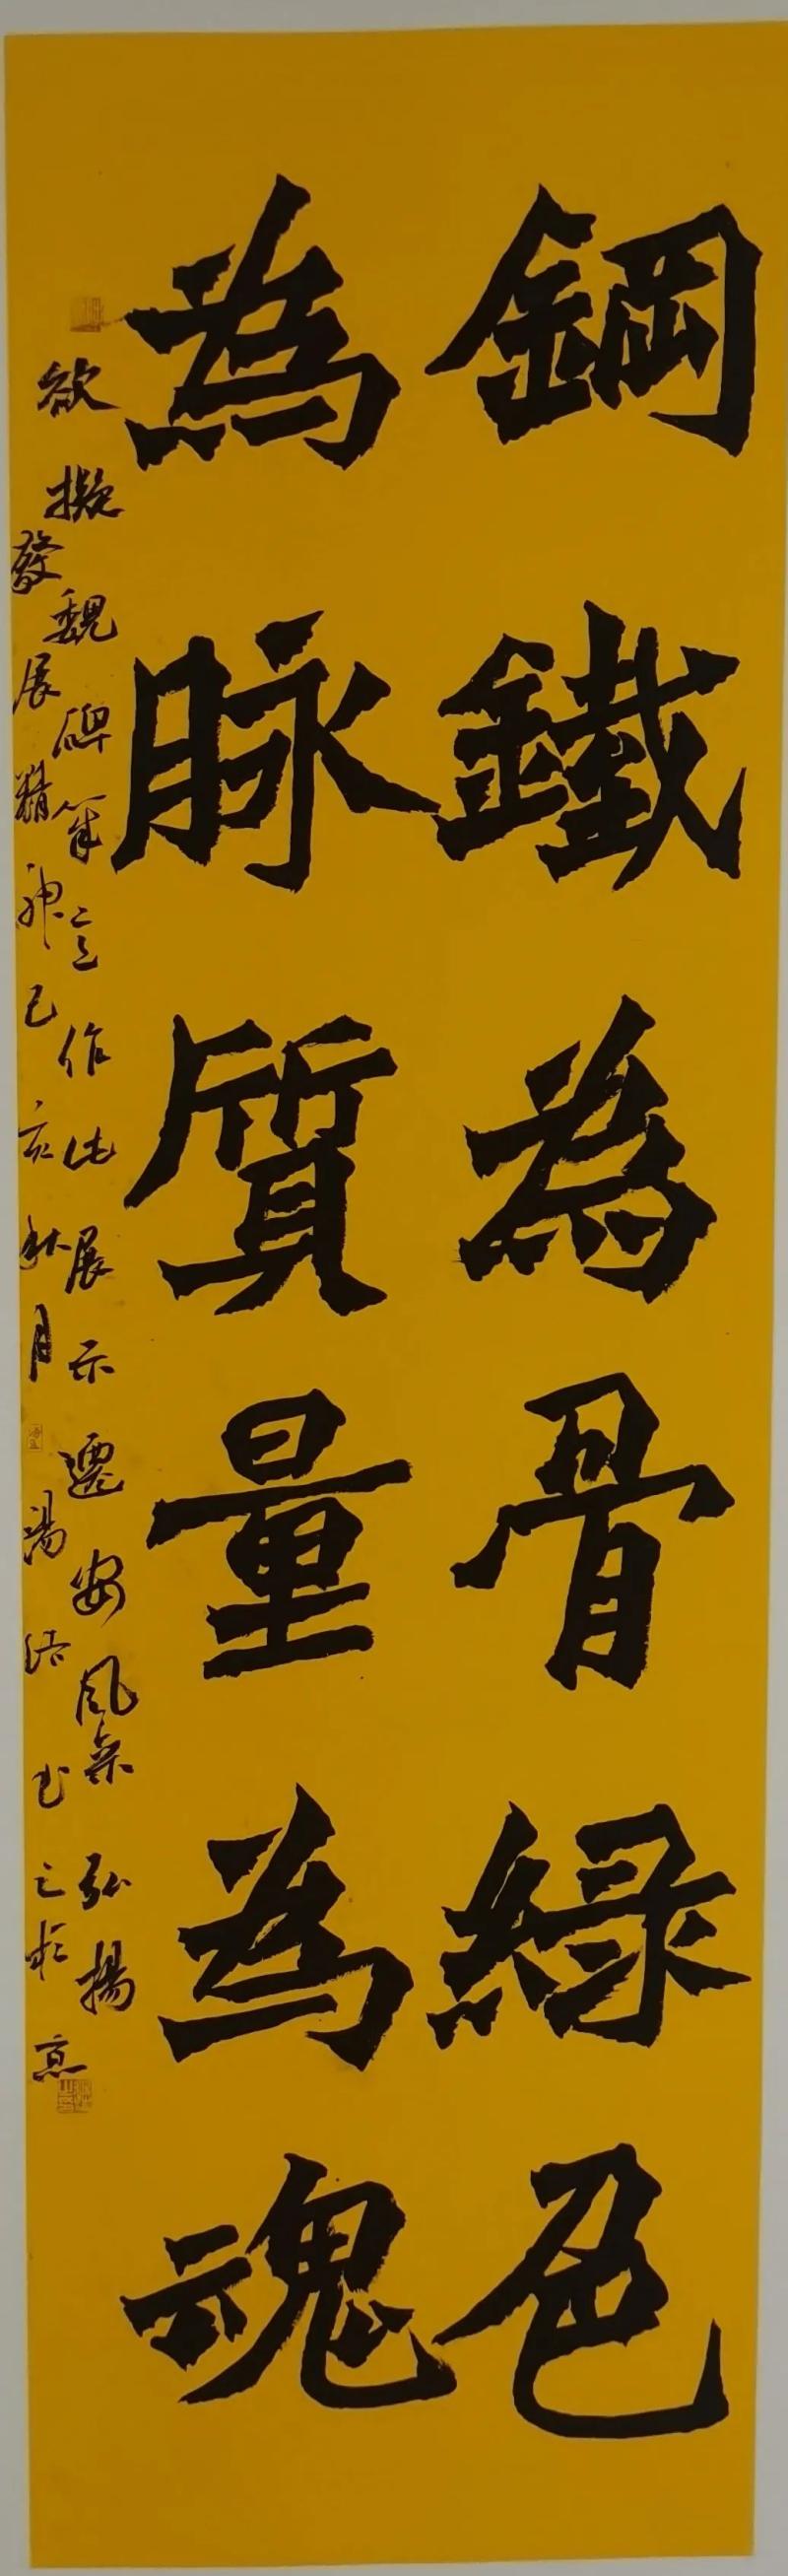 鋼鐵為骨綠色
為脉質量為魂
欲擬魏碑筆意作此展示遷安風采弘揚
發展精神己亥秋月湯浩書之於京